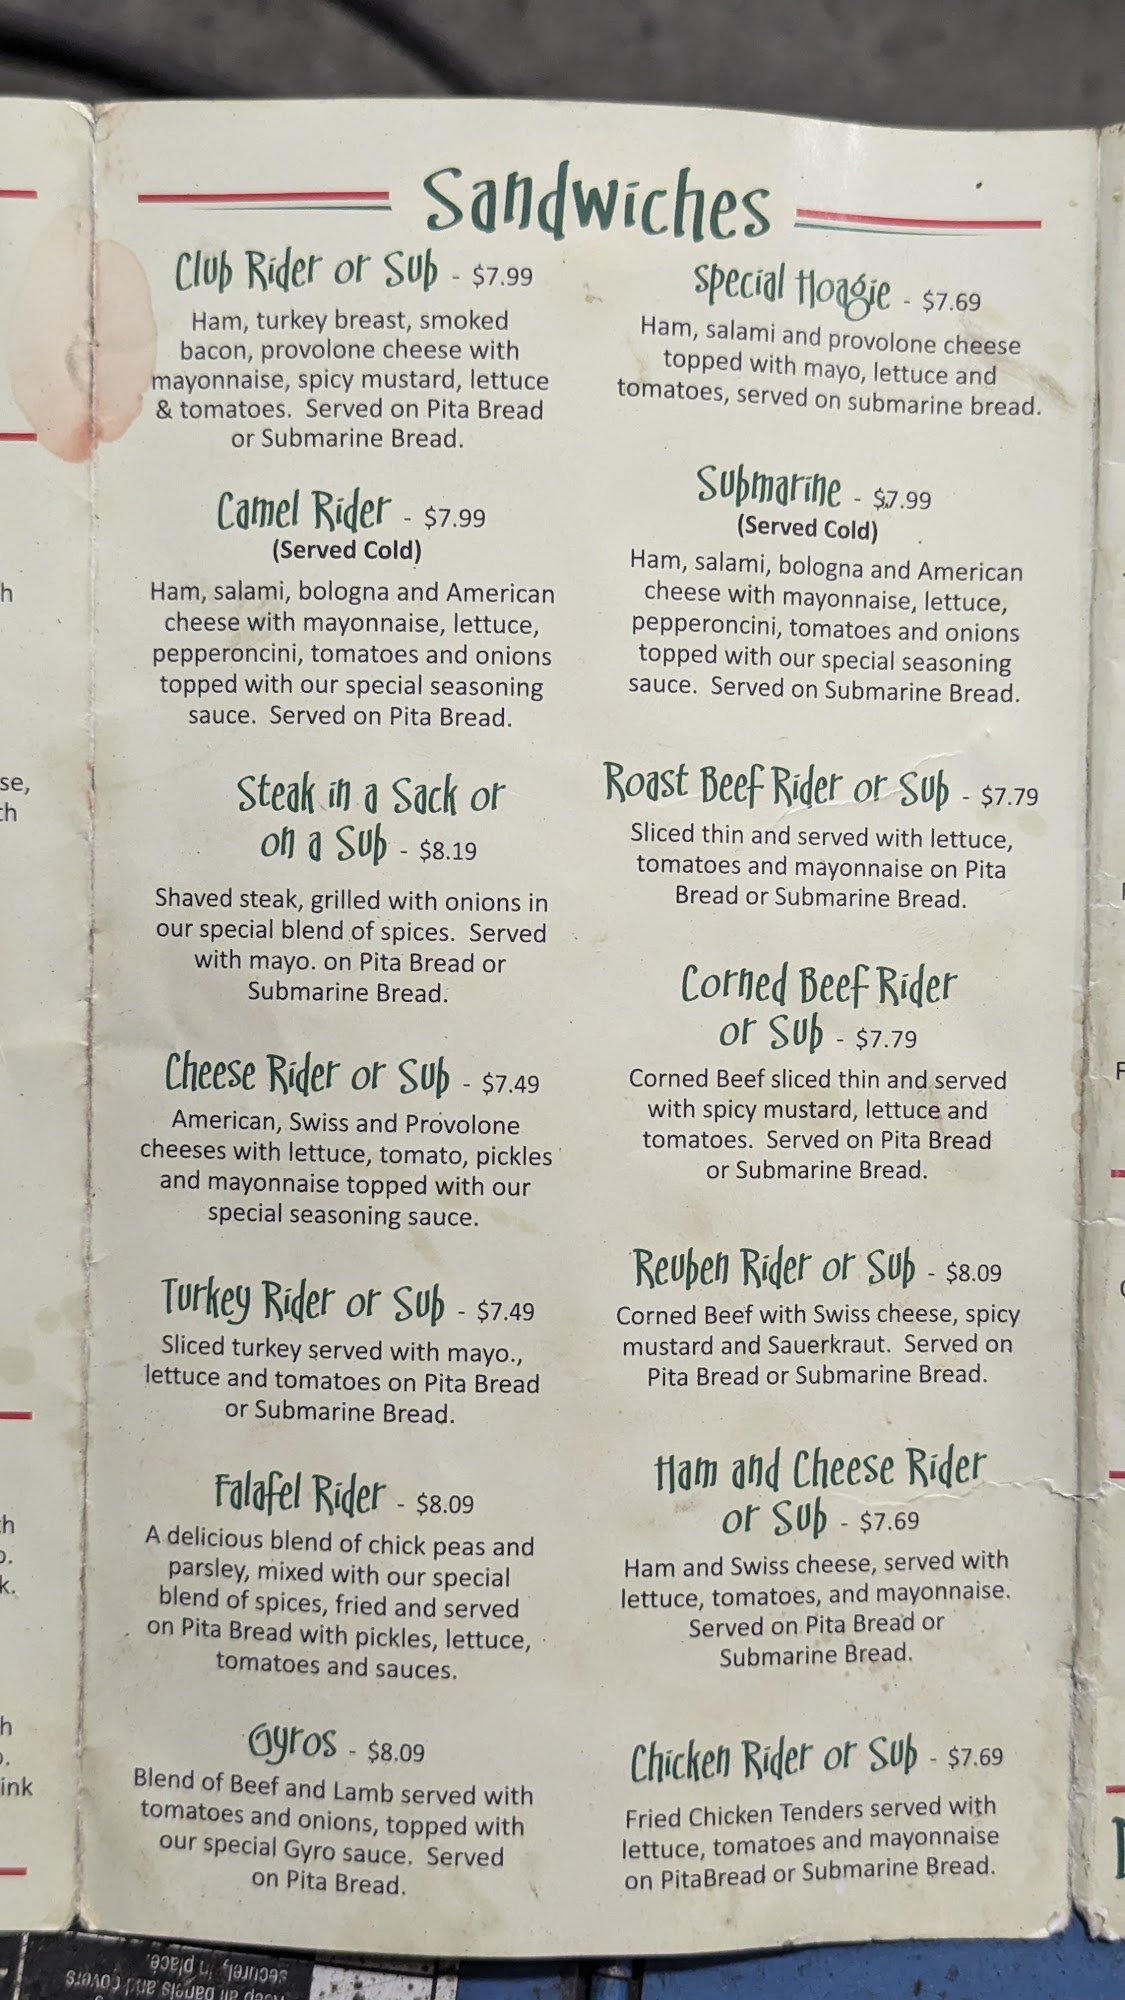 Sandwiches
Club Rider or Sub - $7.99
Ham, turkey breast, smoked
bacon, provolone cheese with
mayonnaise, spicy mustard, lettuce
& tomatoes. Served on Pita Bread
or Submarine Bread.
Camel Rider - $7.99
(Served Cold)
Ham, salami, bologna and American
cheese with mayonnaise, lettuce,
pepperoncini, tomatoes and onions
topped with our special seasoning
sauce. Served on Pita Bread.
Steak in a Sack or
on a Sub - $8.19
Shaved steak, grilled with onions in
our special blend of spices. Served
with mayo. on Pita Bread or
Submarine Bread.
Cheese Rider or Sub - $7.49
American, Swiss and Provolone
cheeses with lettuce, tomato, pickles
and mayonnaise topped with our
special seasoning sauce.
Turkey Rider or Sub - $7.49
Sliced turkey served with mayo.,
lettuce and tomatoes on Pita Bread
or Submarine Bread.
Falafel Rider - $8.09
A delicious blend of chick peas and
parsley, mixed with our special
blend of spices, fried and served
on Pita Bread with pickles, lettuce,
tomatoes and sauces.
Gyros - $8.09
Blend of Beef and Lamb served with
tomatoes and onions, topped with
our special Gyro sauce. Served
on Pita Bread.
Special Hoagie - $7.69
Ham, salami and provolone cheese
topped with mayo, lettuce and
tomatoes, served on submarine bread.
Submarine - $7.99
(Served Cold)
Ham, salami, bologna and American
cheese with mayonnaise, lettuce,
pepperoncini, tomatoes and onions
topped with our special seasoning
sauce. Served on Submarine Bread.
Roast Beef Rider or Sub - $7.79
Sliced thin and served with lettuce,
tomatoes and mayonnaise on Pita
Bread or Submarine Bread.
Corned Beef Rider
or Sub - $7.79
Corned Beef sliced thin and served
with spicy mustard, lettuce and
tomatoes. Served on Pita Bread
or Submarine Bread.
Reuben Rider or Sub - $8.09
Corned Beef with Swiss cheese, spicy
mustard and Sauerkraut. Served on
Pita Bread or Submarine Bread.
Ham and Cheese Rider
or Sub - $7.69
Ham and Swiss cheese, served with
lettuce, tomatoes, and mayonnaise.
Served on Pita Bread or
Submarine Bread.
Chicken Rider or Sub - $7.69
Fried Chicken Tenders served with
lettuce, tomatoes and mayonnaise
on PitaBread or Submarine Bread.
panels and covers
secure, in place.